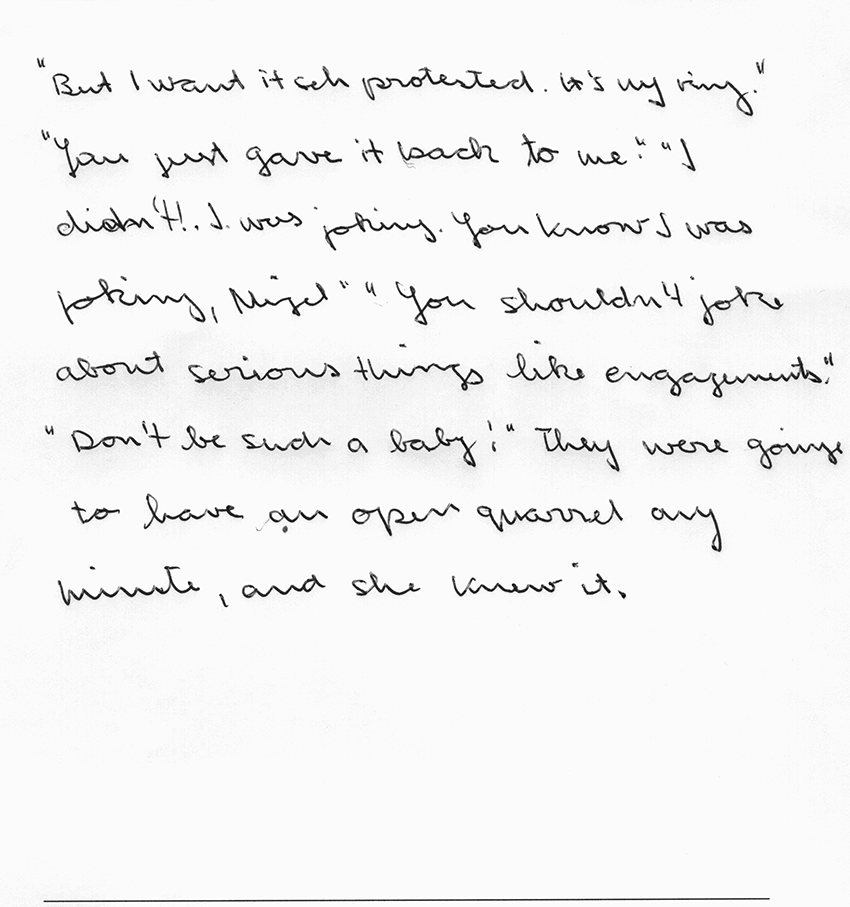 "But I want it seh protested. It's my ring."
"You just gave it back to me." "I
didn't!. I was joking. You know I was
joking, Nigel" "You shouldn't joke
about serious things like engagements."
"Don't be such a baby!" They were going
to have an open quarrel any
minute, and she knew it.